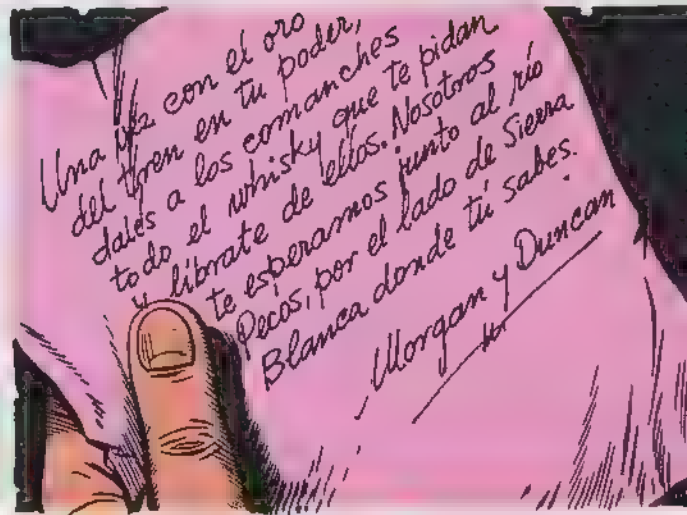 Una vez con el oro
del tren en tu poder,
dales a los comanches
todo el whisky que te pidan
y líbrate de ellos. Nosotros
te esperamos junto al río
Pecos, por el lado de Sierra
Blanca donde tú sabes.
Morgan y Duncan